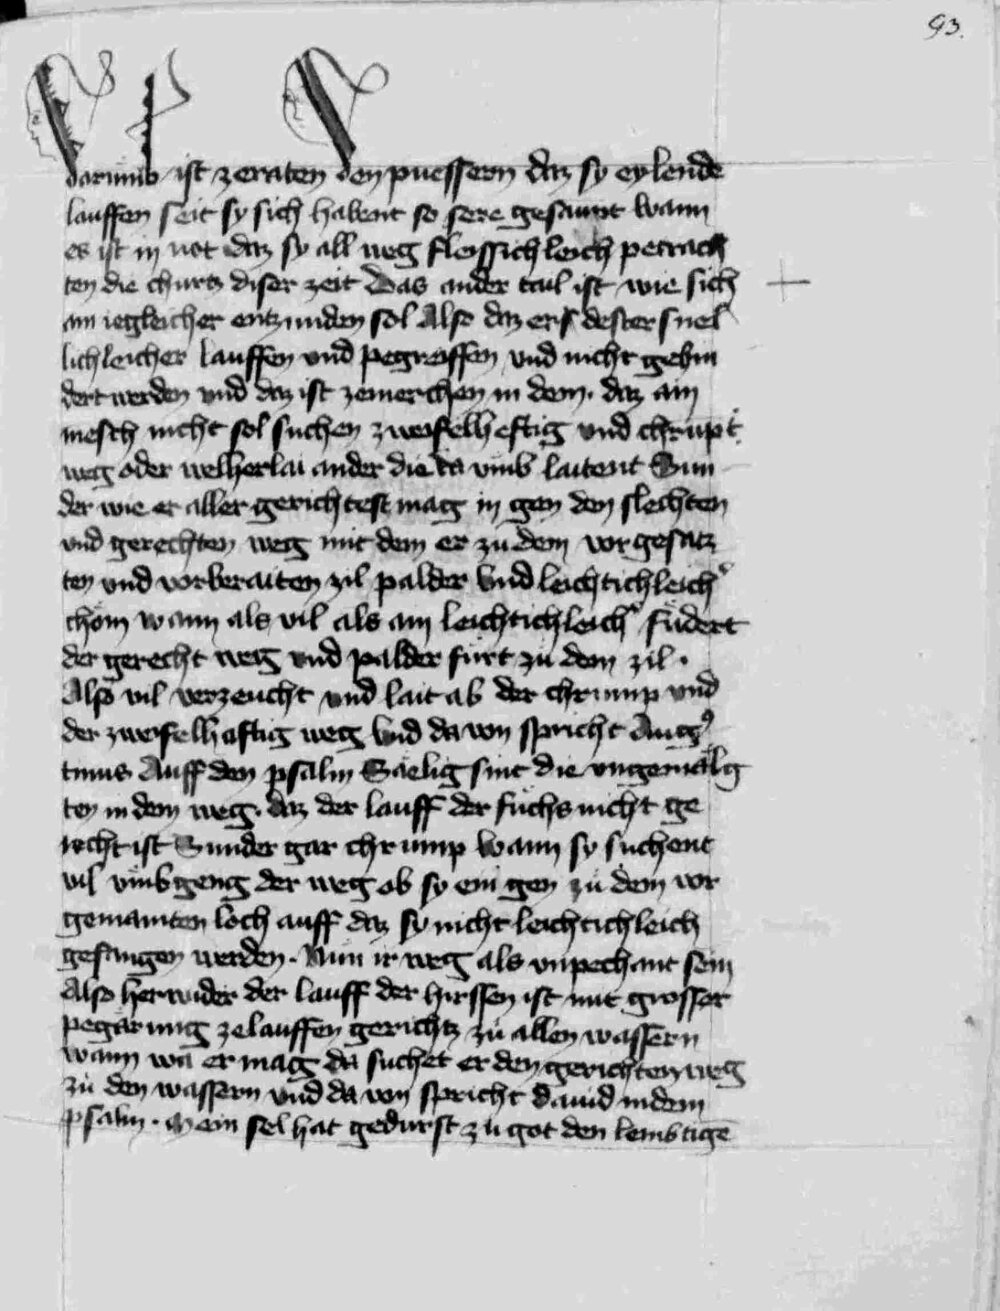 93.
darumb ist zeraten den puessern daz sy eylende
lauffen seit sy sich habent so sere gesaumt wann
es ist in not daz sy all weg fleissichleich petrach
ten die churtz diser zeit Das ander tail ist wie sich
ain iegleicher entzunden sol Also daz er dester snel
lichleicher lauffen vnd pegreiffen vnd nicht gehin
dert werden vnd daz ist zemerchen in dem. daz ain
mesch nicht sol suchen zweifelheftig vnd chrupt
weg oder welherlai ander die da vmb laitent Sun
der wie er aller gerichtest mag in gen den slechten
vnd gerechten weg mit dem er zu dem vor gesatz
ten vnd vorberaiten zil palder vnd leichtichleich
chöm wann als vil als ain leichtichleich füdert
der gerecht weg vnd palder fürt zu dem zil.
Also vil verzeucht vnd lait ab der chrump vnd
der zweifelhaftig weg vnd da von spricht Augꝰ
tinus Auff den psalm Saelig sint die vngemalg
ten in dem weg. daz der lauff der fuchs nicht ge
recht ist Sunder gar chrump wann sy suchent
vil vmbgeng der weg ob sy ein gen zu dem vor
genanten loch auff daz sy nicht leichtichleich
gefangen werden. Nun ir weg als vnpechant sein
Also herwider der lauff der hirssen ist mit grosser
pegärung zelauffen gerichtz zu allen wassern
wann wa er mag da suchet er den gerichten weg
zu den wassern vnd da von spricht dauid in dem
psalm. Mein sel hat gedurst zu got den lembtigē